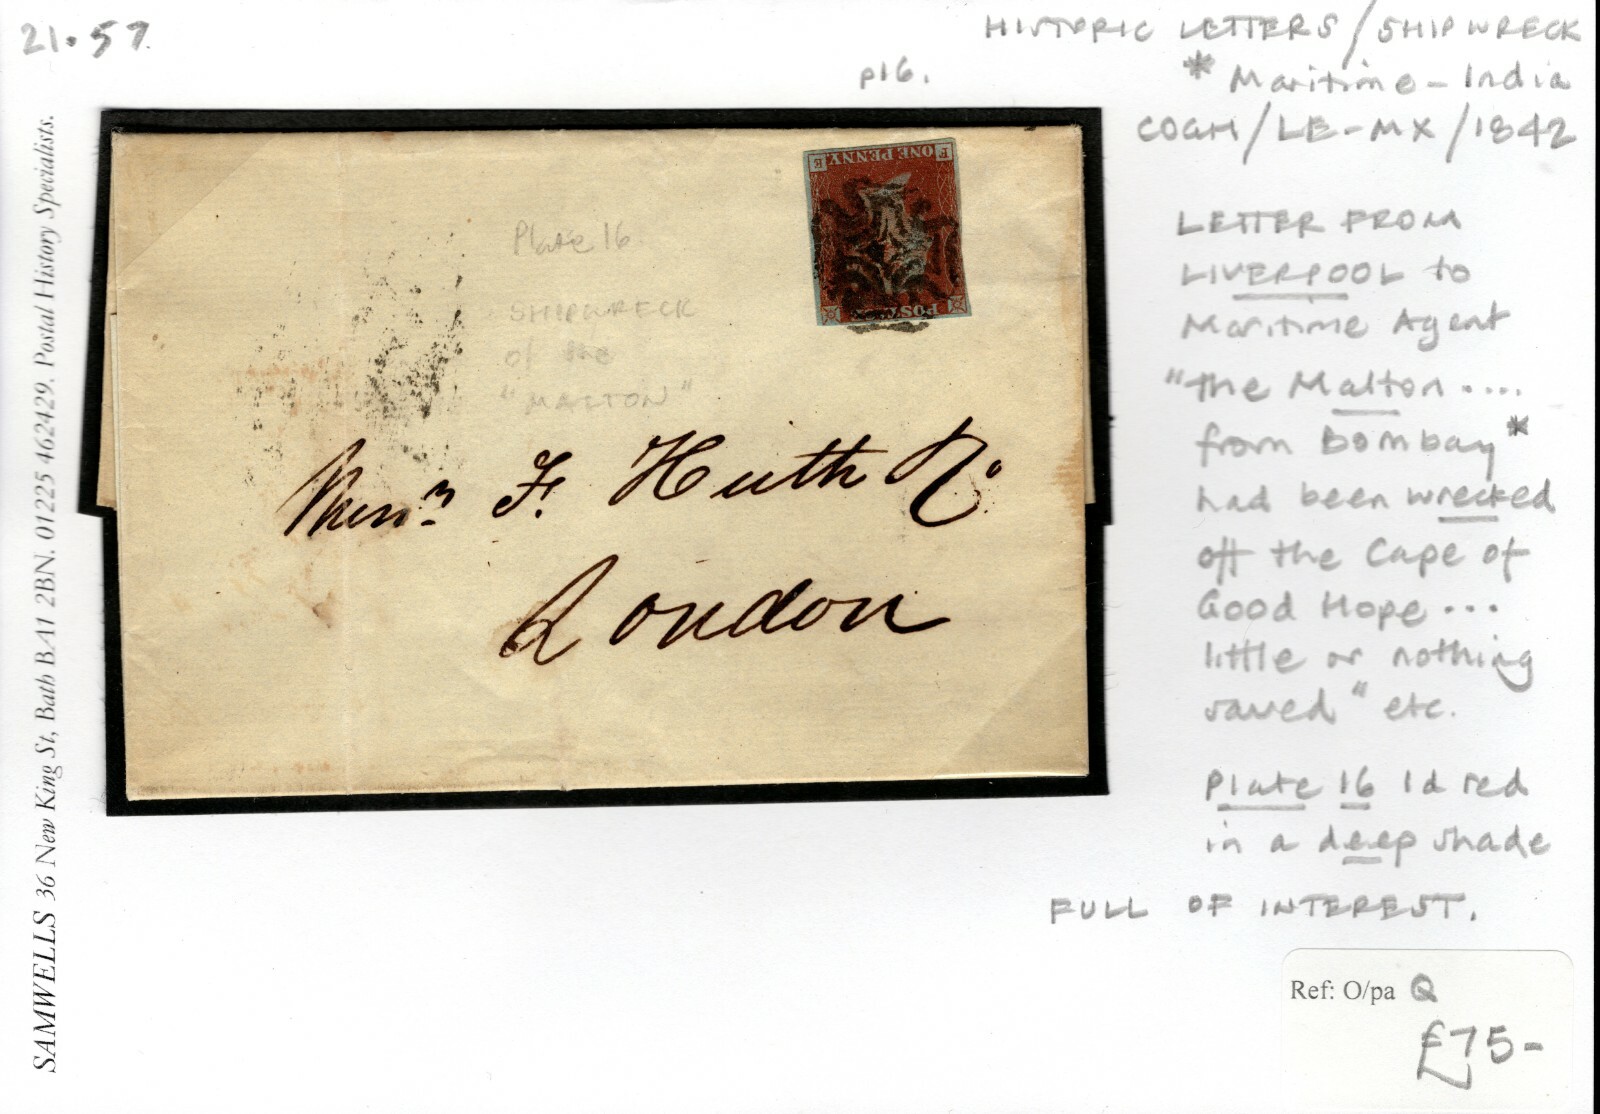 21.57
HISTORIC LETTERS/SHIPWRECK
p16.
* Maritime - India
COGH/LE-MX/1842
LETTER FROM
LIVERPOOL to
Maritime Agent
"the Malton ....
from Bombay"*
had been wrecked
off the Cape of
Good Hope ...
little or nothing
saved" etc.
Plate 16 1d red
in a deep shade
FULL OF INTEREST.
Ref: O/pa Q
£75-
SAMWELLS 36 New King St, Bath BA1 2BN. 01225 462429. Postal History Specialists.
Plate 16
SHIPWRECK
of the
"MALTON"
POSTAGE
ONE PENNY
F E
Messrs F. Huth & Co
London